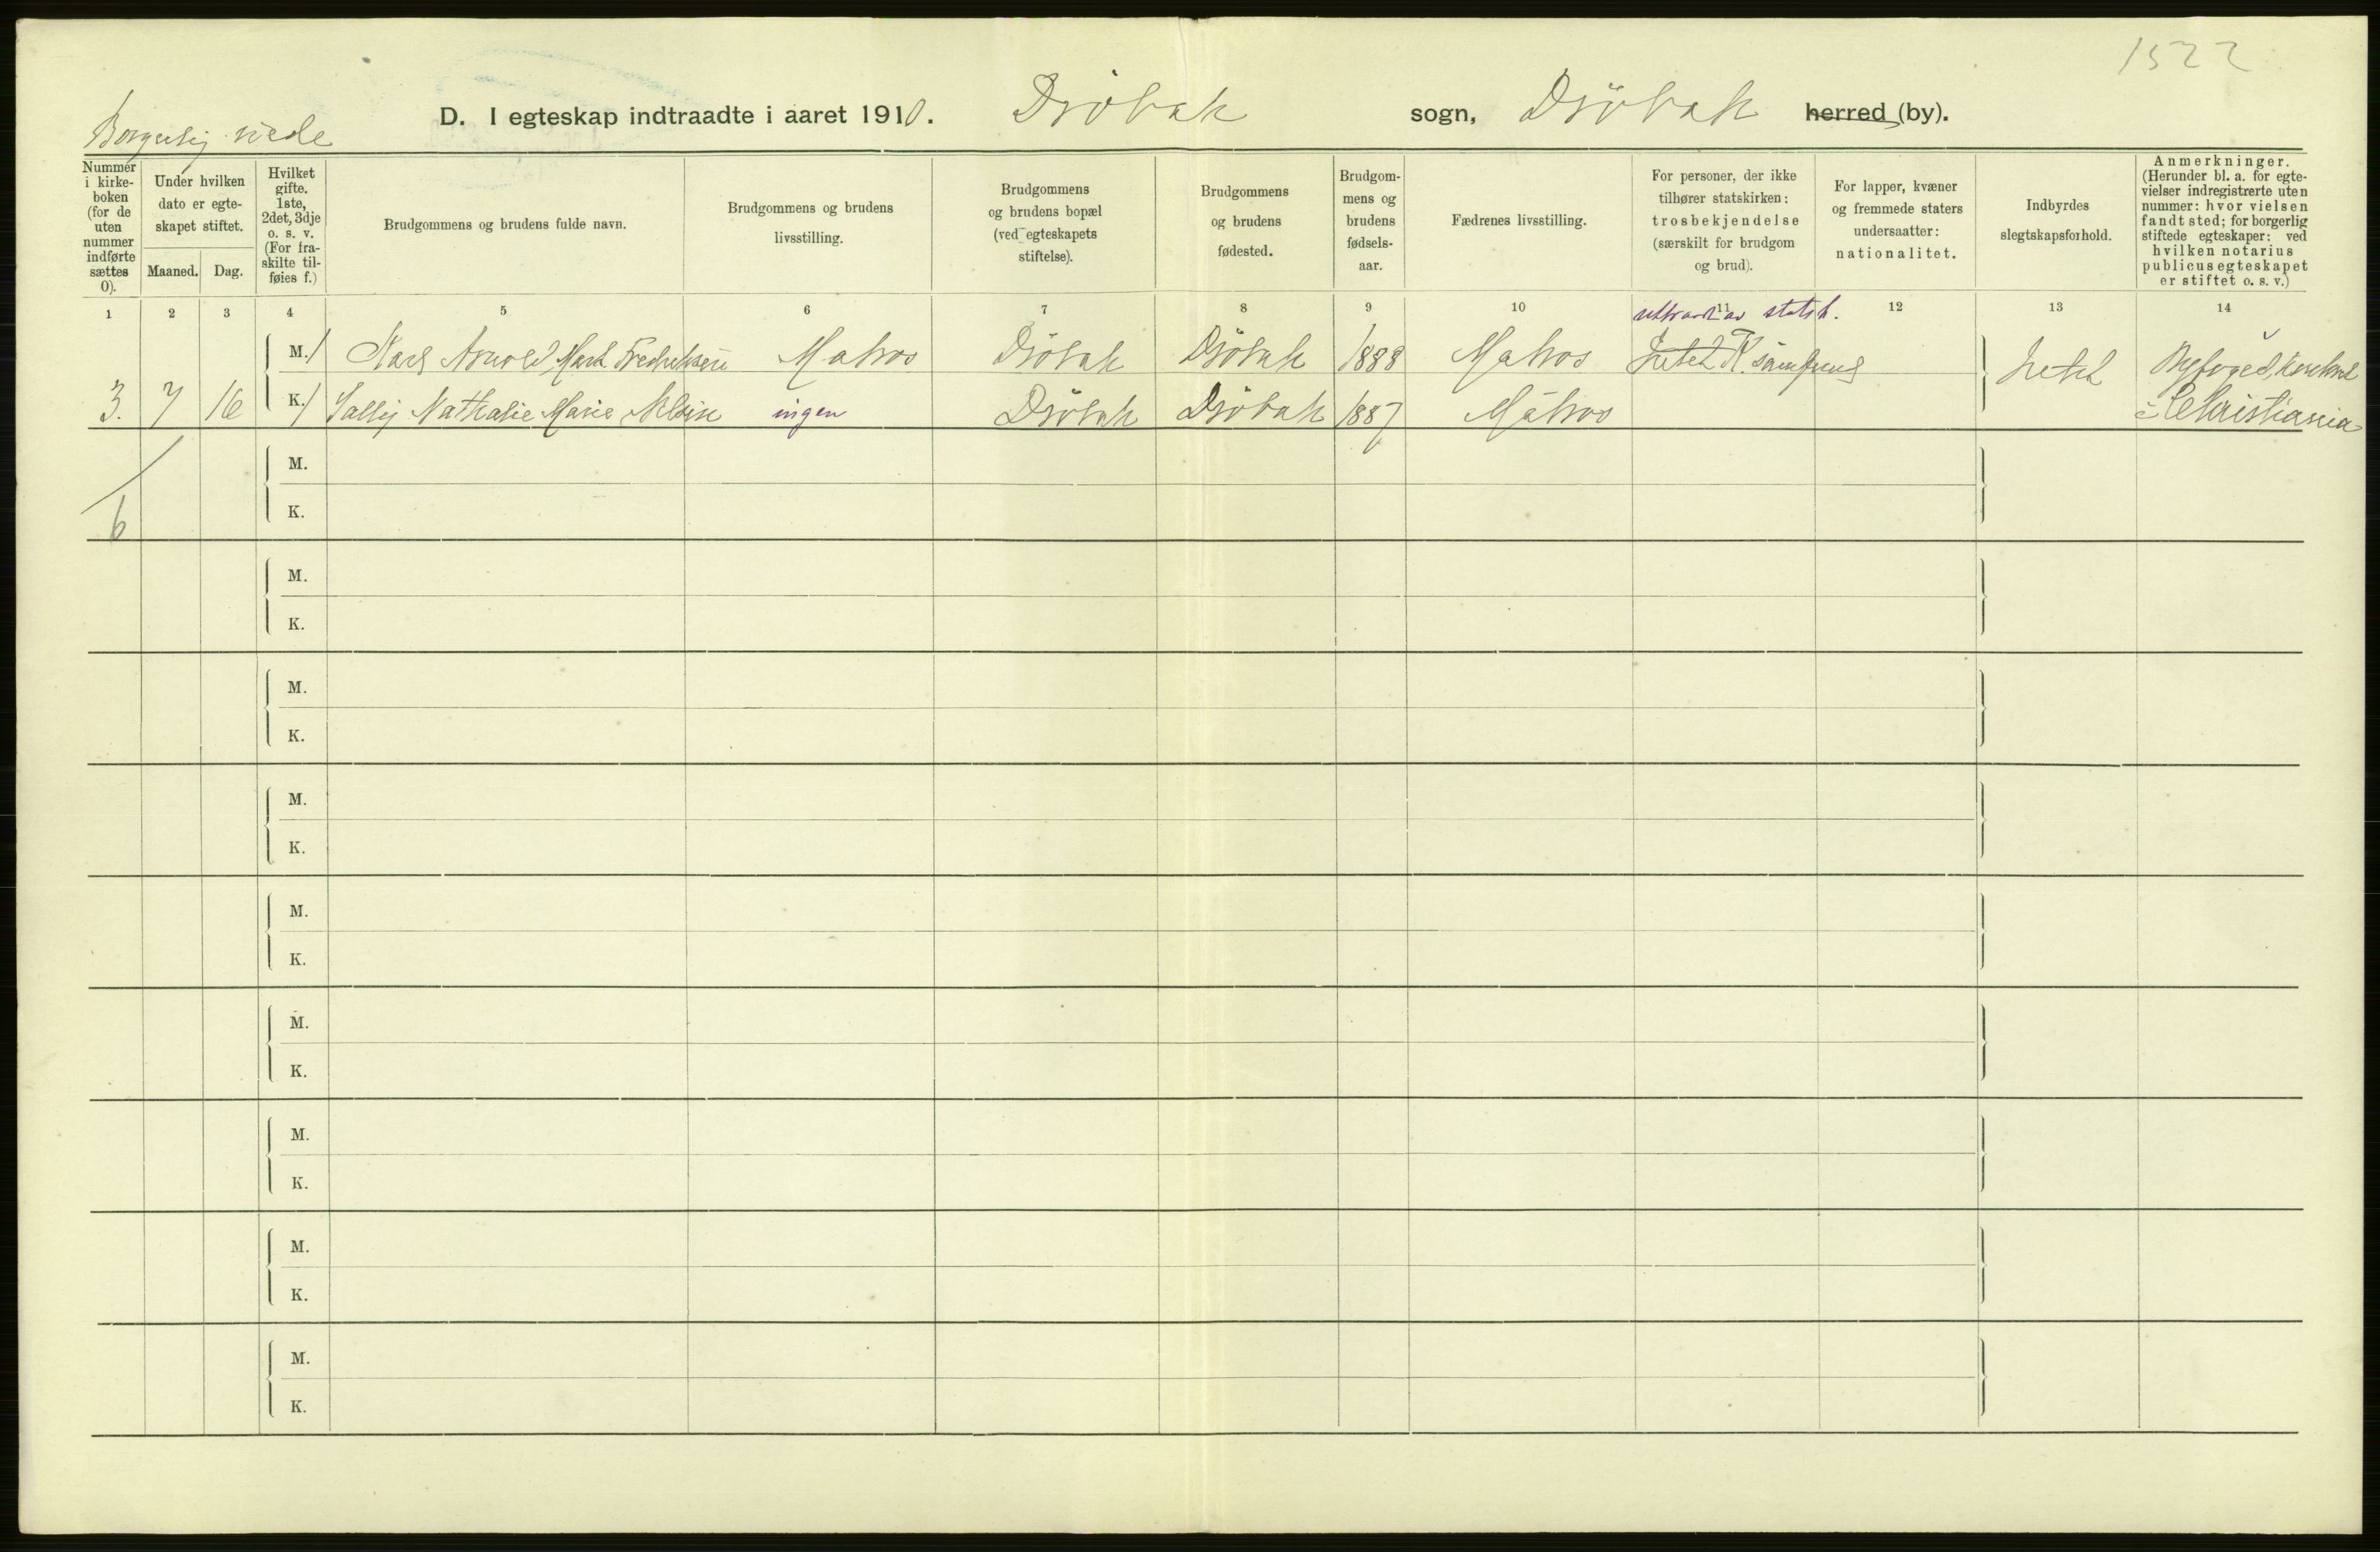 1522
Borgerlig viede
D. I egteskap indtraadte i aaret 1910. Dröbak sogn, Dröbak herred (by).
Nummer i kirke-boken (for de uten nummer indførte sættes 0).
Under hvilken dato er egte-skapet stiftet.
Maaned. Dag.
Hvilket gifte. 1ste, 2det, 3dje o. s. v. (For fra-skilte til-føies f.)
Brudgommens og brudens fulde navn.
Brudgommens og brudens livsstilling.
Brudgommens og brudens bopæl (ved egteskapets stiftelse).
Brudgommens og brudens fødested.
Brudgom-mens og brudens fødsels-aar.
Fædrenes livsstilling.
For personer, der ikke tilhører statskirken: trosbekjendelse (særskilt for brudgom og brud).
For lapper, kvæner og fremmede staters undersaatter: nationalitet.
Indbyrdes slegtskapsforhold.
Anmerkninger. (Herunder bl. a. for egte-vielser indregistrerte uten nummer: hvor vielsen fandt sted; for borgerlig stiftede egteskaper: ved hvilken notarius publicus egteskapet er stiftet o. s. v.)
1 2 3 4 5 6 7 8 9 10 11 12 13 14
utraadt av statsk.
M. 1 Karl Arnold Fredriksen Matros Dröbak Dröbak 1888 Matros Intet Intet Byfoged
3. 7 16 K. 1 Sally Nathalie Marie Dröbak ingen Dröbak 1887 Matros i Christiania
M.
6 K.
M.
K.
M.
K.
M.
K.
M.
K.
M.
K.
M.
K.
M.
K.
M.
K.